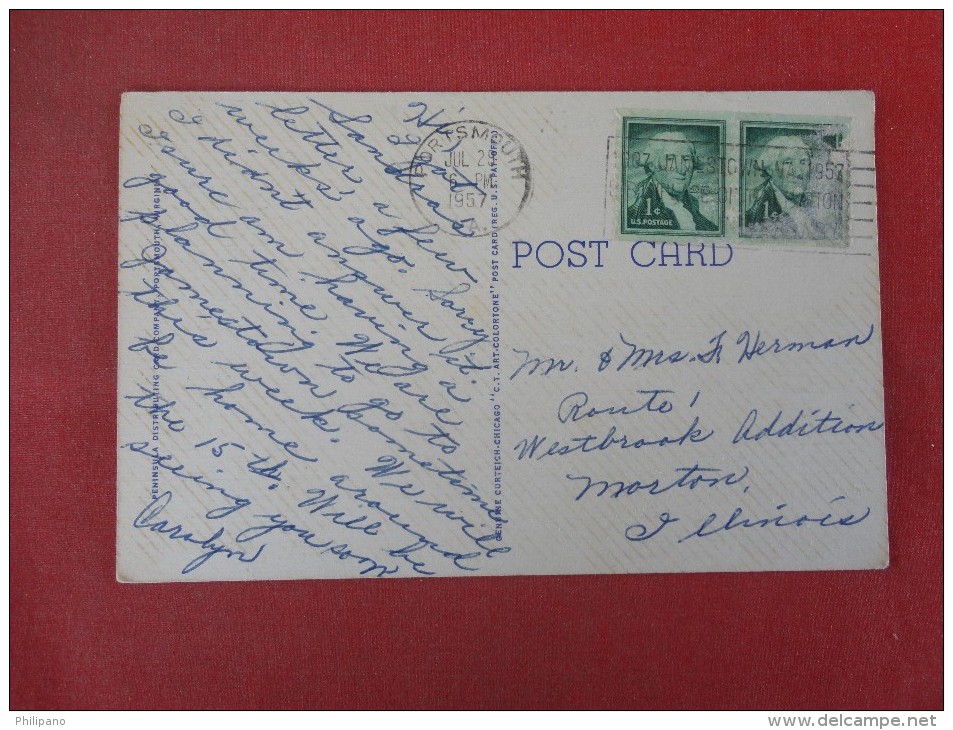 Hi,
I got
Sandra's
letter a few
weeks ago. Sorry
I didnt answer it.
I sure am having a
good time. We are
planning to go to
Jamestown sometime
this week. We will
be home around
the 15th. Will be
seeing you soon
Carolyn
PORTSMOUTH
JUL 29
6 PM
1957
VA.
1607 JAMESTOWN, VA. 1957
1¢
U.S. POSTAGE
1¢
POST CARD
Mr. & Mrs. F. Herman
Route 1
Westbrook Addition
Morton,
Illinois
PENINSULA DISTRIBUTING CARD COMPANY, PORTSMOUTH, VIRGINIA
GENUINE CURTEICH-CHICAGO "C.T. ART-COLORTONE" POST CARD (REG. U.S. PAT. OFF.)
Philipano
www.delcampe.net